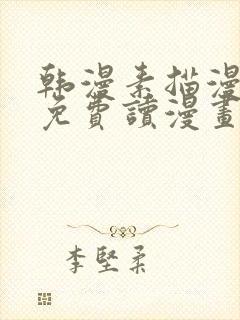 韩漫素描漫
免費讀漫畫
李堅柔